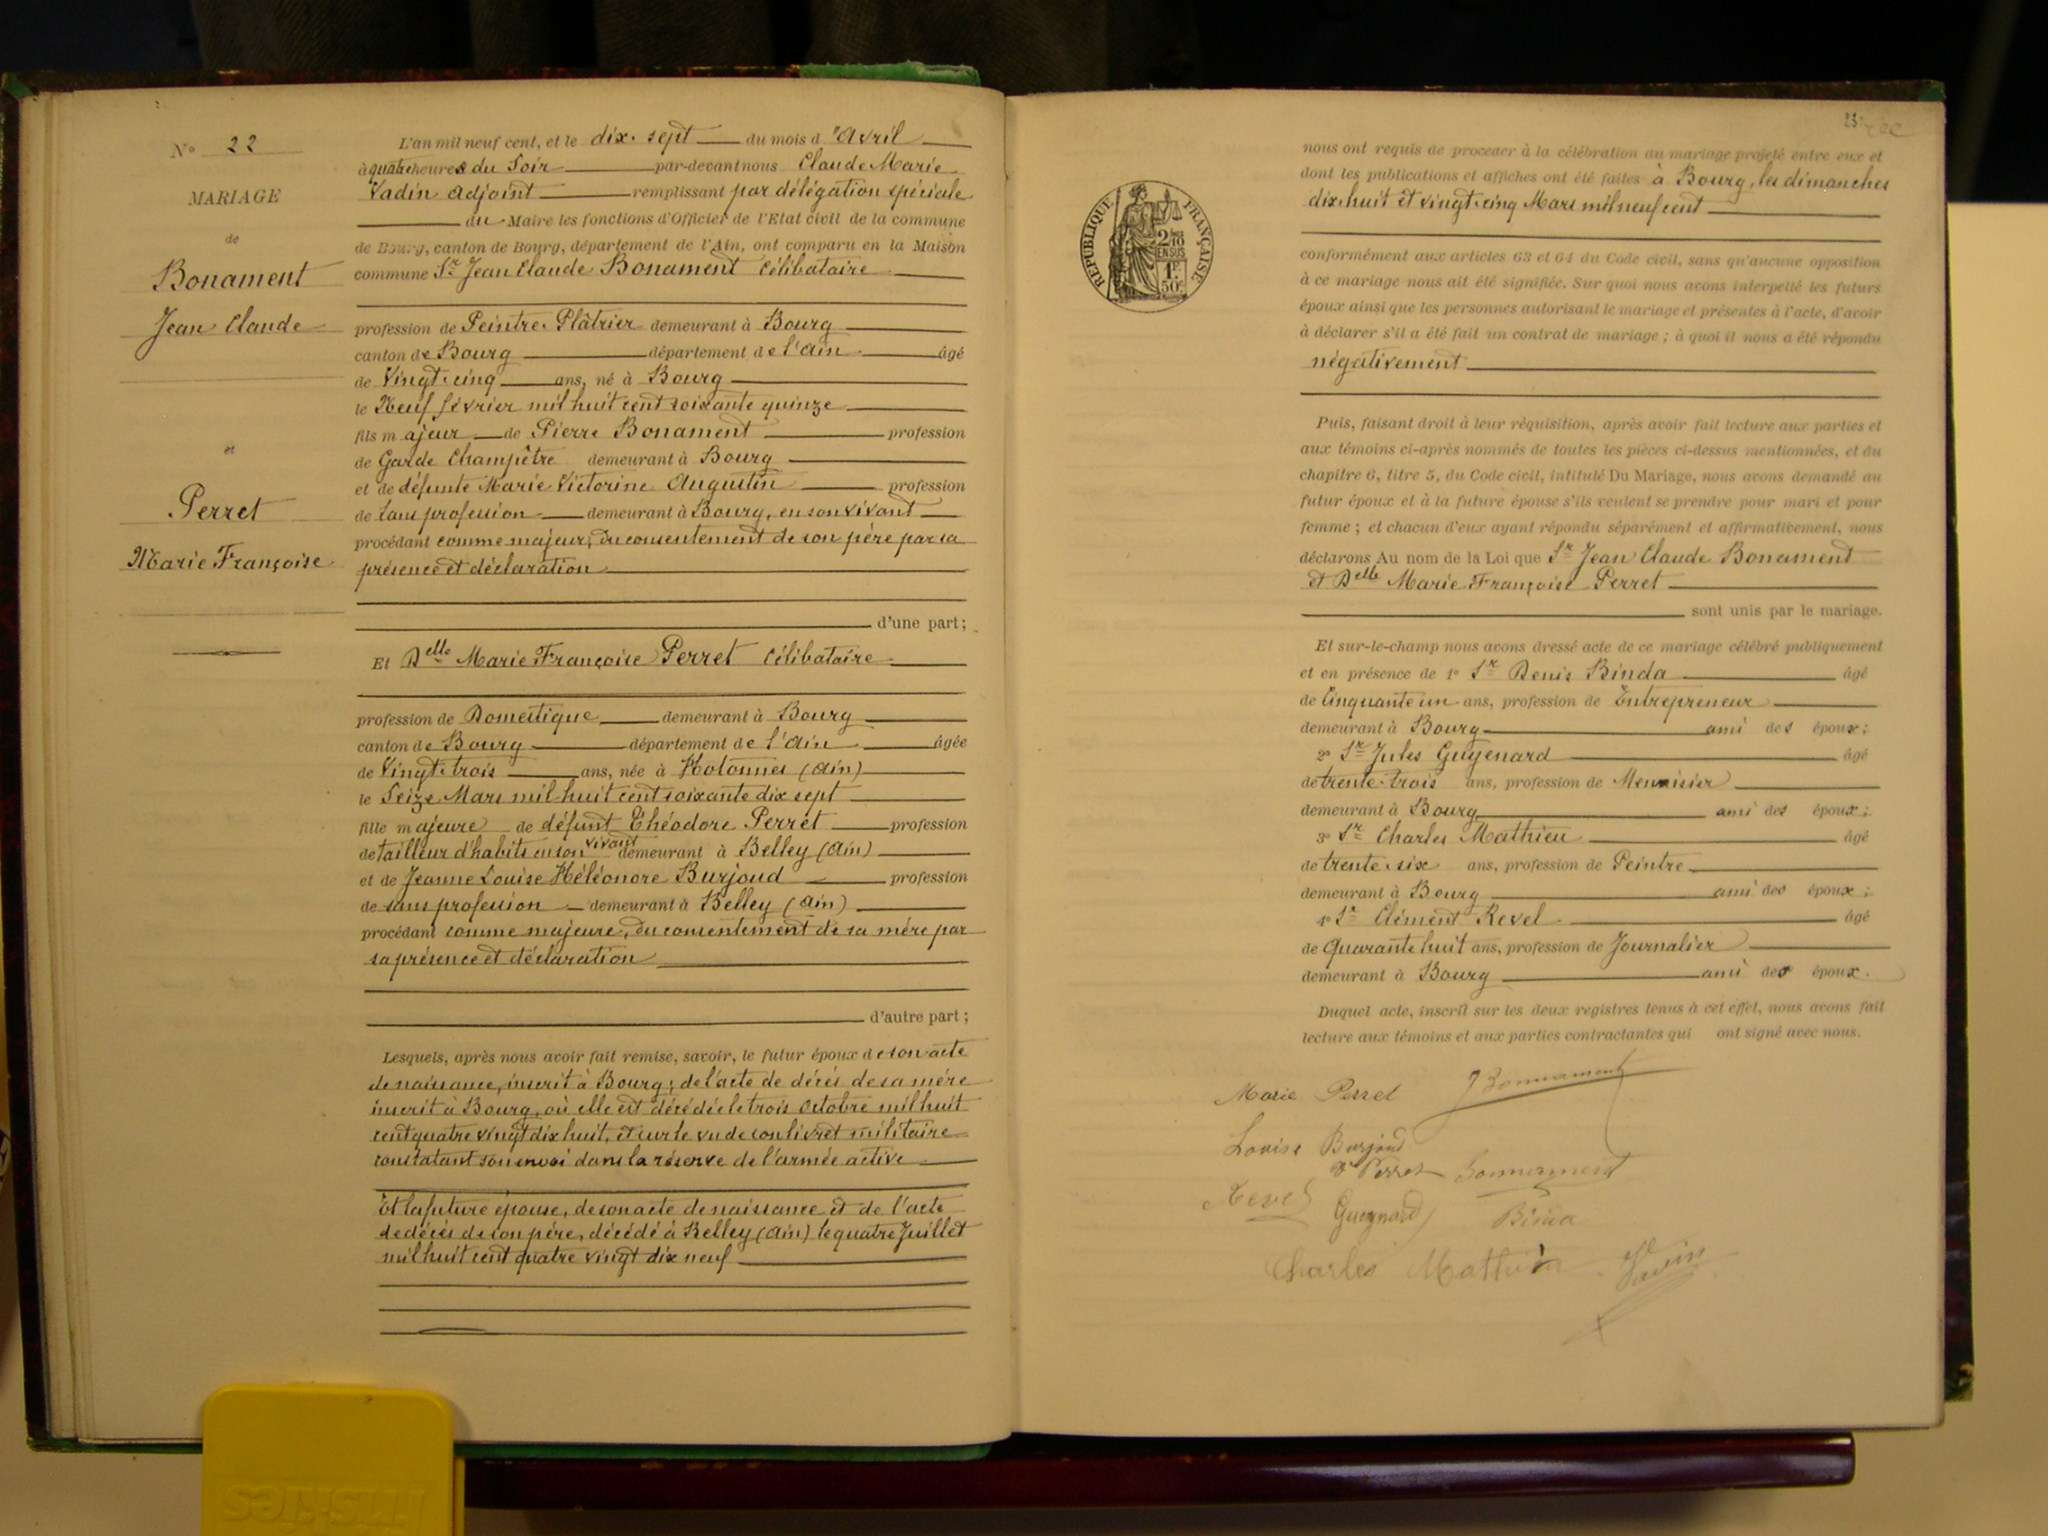 N° 22
MARIAGE
de
Bonament
Jean Claude
et
Perret
Marie Françoise
L'an mil neuf cent, et le dix-sept du mois d'Avril
à quatre heures du Soir par-devant nous Claude Marie
Vadin Adjoint remplissant par délégation spéciale
du Maire les fonctions d'Officier de l'Etat civil de la commune
de Bourg, canton de Bourg, département de l'Ain, ont comparu en la Maison
commune Sr Jean Claude Bonament Célibataire
profession de Peintre Plâtrier demeurant à Bourg
canton de Bourg département de l'Ain âgé
de Vingt-cinq ans, né à Bourg
le Neuf février mil huit cent soixante quinze
fils majeur de Pierre Bonament profession
de Garde Champêtre demeurant à Bourg
et de défunte Marie Victorine Augustin profession
de sans profession demeurant à Bourg, en son vivant
procédant comme majeur, du consentement de son père par sa
présence et déclaration
d'une part;
Et Delle Marie Françoise Perret Célibataire
profession de Domestique demeurant à Bourg
canton de Bourg département de l'Ain âgée
de Vingt-trois ans, née à Hotonnes (Ain)
le Seize Mars mil huit cent soixante dix sept
fille majeure de défunt Théodore Perret profession
de tailleur d'habits en son vivant demeurant à Belley (Ain)
et de Jeanne Louise Héléonore Burjoud profession
de sans profession demeurant à Belley (Ain)
procédant comme majeure, du consentement de sa mère par
sa présence et déclaration
d'autre part;
Lesquels, après nous avoir fait remise, savoir, le futur époux de son acte
de naissance, inscrit à Bourg; de l'acte de décès de sa mère
inscrit à Bourg, où elle est décédée le trois Octobre mil huit
cent quatre vingt dix huit, et sur le vu de son livret militaire
constatant son envoi dans la réserve de l'armée active
Et la future épouse, de son acte de naissance et de l'acte
de décès de son père, décédé à Belley (Ain) le quatre Juillet
mil huit cent quatre vingt dix neuf
23
RÉPUBLIQUE FRANÇAISE
2/10
EN SUS
1F
50c
nous ont requis de procéder à la célébration du mariage projeté entre eux et
dont les publications et affiches ont été faites à Bourg, les dimanches
dix-huit et vingt-cinq Mars mil neuf cent
conformément aux articles 63 et 64 du Code civil, sans qu'aucune opposition
à ce mariage nous ait été signifiée. Sur quoi nous avons interpellé les futurs
époux ainsi que les personnes autorisant le mariage et présentes à l'acte, d'avoir
à déclarer s'il a été fait un contrat de mariage; à quoi il nous a été répondu
négativement
Puis, faisant droit à leur réquisition, après avoir fait lecture aux parties et
aux témoins ci-après nommés de toutes les pièces ci-dessus mentionnées, et du
chapitre 6, titre 5, du Code civil, intitulé Du Mariage, nous avons demandé au
futur époux et à la future épouse s'ils veulent se prendre pour mari et pour
femme; et chacun d'eux ayant répondu séparément et affirmativement, nous
déclarons Au nom de la Loi que Sr Jean Claude Bonament
et Delle Marie Françoise Perret
sont unis par le mariage.
Et sur-le-champ nous avons dressé acte de ce mariage célébré publiquement
et en présence de 1° Sr Denis Binda âgé
de Cinquante un ans, profession de Entrepreneur
demeurant à Bourg ami des époux;
2° Sr Jules Guyenard âgé
de trente-trois ans, profession de Menuisier
demeurant à Bourg ami des époux;
3° Sr Charles Mathieu âgé
de trente-six ans, profession de Peintre
demeurant à Bourg ami des époux;
4° Sr Clément Revel âgé
de Quarante huit ans, profession de Journalier
demeurant à Bourg ami des époux.
Duquel acte, inscrit sur les deux registres tenus à cet effet, nous avons fait
lecture aux témoins et aux parties contractantes qui ont signé avec nous.
Marie Perret J Bonnament
Louise Burjoud
Perret Bonnament
Revel Gueynard Binda
Charles Mathieu Vadin